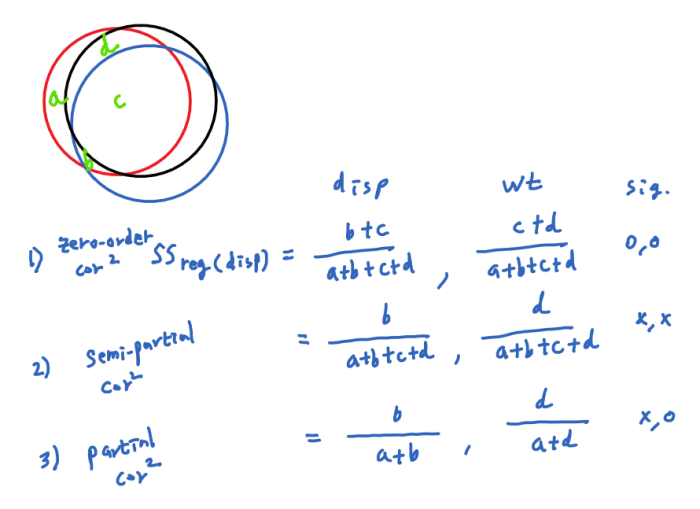 d
a
c
b
disp wt sig.
1) zero-order cor² SS reg(disp) = b+c / a+b+c+d , c+d / a+b+c+d o,o
2) semi-partial cor² = b / a+b+c+d , d / a+b+c+d x,x
3) partial cor² = b / a+b , d / a+d x,o